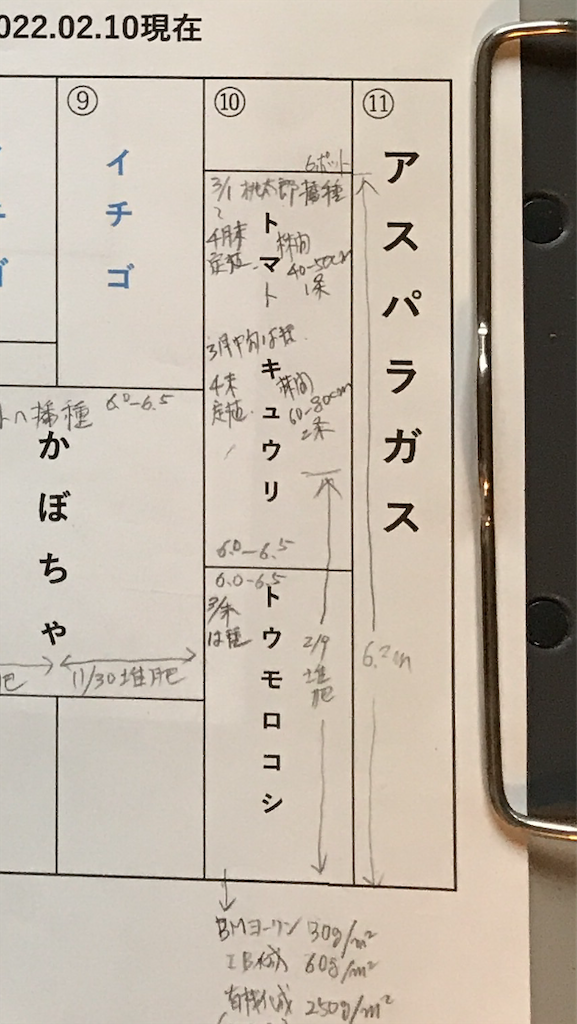 022.02.10現在
⑨
イチゴ
播種 6.0-6.5
かぼちゃ
11/30堆肥
肥
⑩
6ポット
3/1 桃太郎播種
4月末
定植
トマト
株間
40-50cm
1条
3月中旬は種
4末
定植
キュウリ
株間
60-80cm
2条
6.0-6.5
6.0-6.5
3/末
は種
トウモロコシ
2/9
堆肥
⑪
アスパラガス
BMヨーリン 30g/m²
IB化成 60g/m²
有機化成 250g/m²